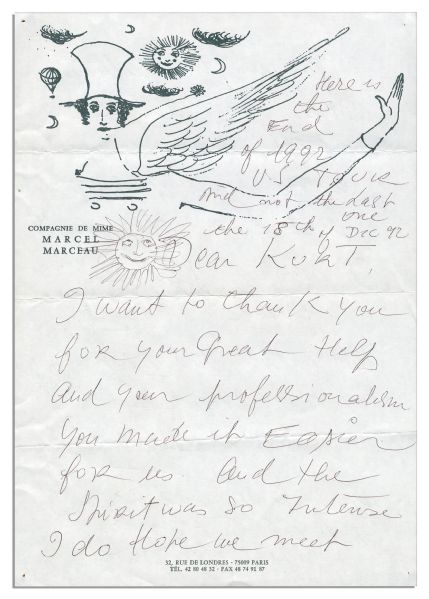 Here is
the
End
of 1992
U.S TOUR
And not the last
one
the 18th of DEC 92
COMPAGNIE DE MIME
MARCEL
MARCEAU
Dear Kurt,
I want to thank you
for your Great Help
And your professionalism
You made it Easier
for us. And the
Spirit was so Intense
I do Hope we meet
32, RUE DE LONDRES - 75009 PARIS
TÉL. 42 80 48 32 - FAX 48 74 91 87